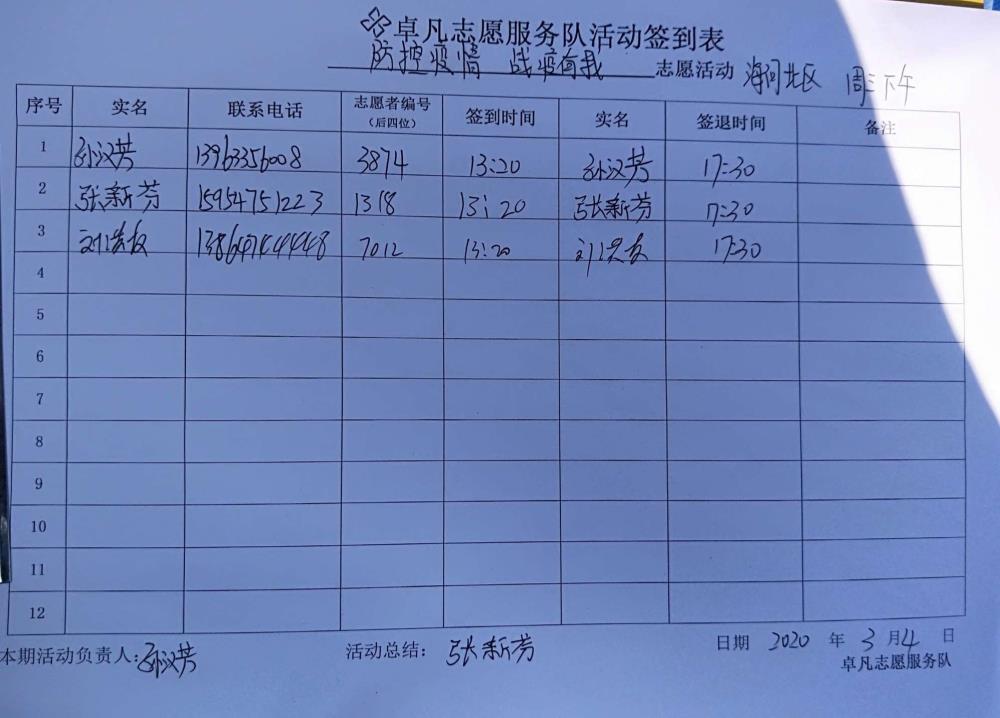 卓凡志愿服务队活动签到表
防控疫情 战疫有我 志愿活动 海河北区 周三下午
序号 实名 联系电话 志愿者编号（后四位） 签到时间 实名 签退时间 备注
1 孙汉芳 13963356008 3874 13:20 孙汉芳 17:30
2 张新芳 15954751223 1318 13:20 张新芳 17:30
3 刘洪友 7012 13:20 刘洪友 17:30
4
5
6
7
8
9
10
11
12
本期活动负责人:孙汉芳 活动总结: 张新芳 日期 2020 年 3 月 4 日
卓凡志愿服务队